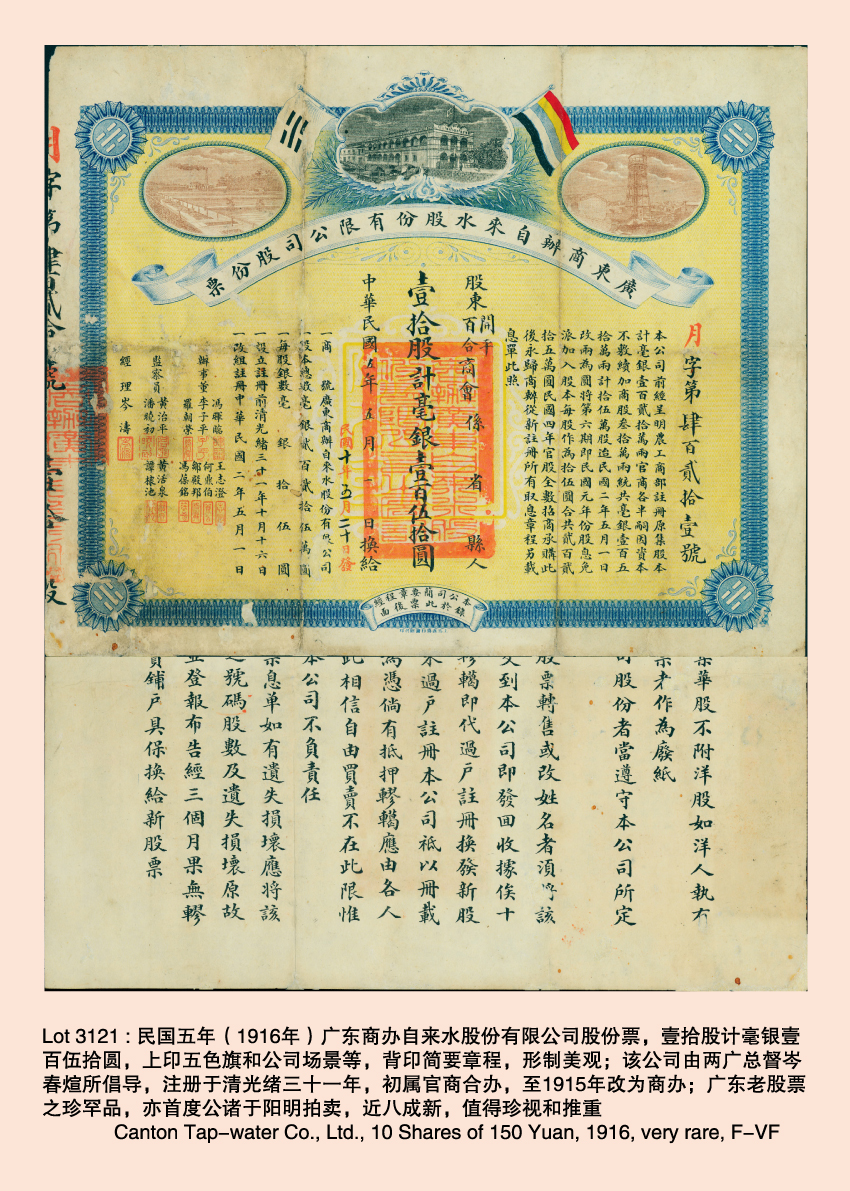 廣東商辦自來水股份有限公司股份票
月字第肆百貳拾壹號
本公司前經呈明農工商部註册原集股本
計毫銀壹百貳拾萬兩官商各半嗣因資本
不敷續加商股叁拾萬兩統共毫銀壹百五
拾萬兩計拾伍萬股迨民國二年五月一日
改兩為圓將第六期即民國元年份股息免
派加入股本每股作為拾伍圓合共貳百貳
拾五萬圓民國四年官股全數招商承購此
後永歸商辦從新註册所有取息章程另載
息單此照
股東開平百合商會係省縣人
壹拾股計毫銀壹百伍拾圓
中華民國五年五月一日換給
民國十年五月二十日發
一商號廣東商辦自來水股份有限公司
一股本總數毫銀貳百貳拾伍萬圓
一每股銀數毫銀拾伍圓
一設立註册前清光緒三十一年十月十六日
一改組註册中華民國二年五月一日
辦事董
馮暉臨
李子平
羅朝榮
王志澄
何鼎伯
鄔殿邦
馮葆銘
監察員
黃治平
潘曉初
黃活泉
譚棣池
經理岑濤
字第肆百貳拾壹號
壹拾股
本公司簡要章程經
錄於此票後面
業華股不附洋股如洋人執有
票才作為廢紙
司股份者當遵守本公司所定
股票轉售或改姓名者須將該
交到本公司即發回收據俟十
轇轕即代過戶註册換發新股
未過戶註册本公司祗以册載
為憑倘有抵押轇轕應由各人
此相信自由買賣不在此限惟
本公司不負責任
票息單如有遺失損壞應將該
之號碼股數及遺失損壞原故
並登報布告經三個月果無轇
員鋪戶具保換給新股票
Lot 3121 : 民国五年（1916年）广东商办自来水股份有限公司股份票，壹拾股计毫银壹
百伍拾圆，上印五色旗和公司场景等，背印简要章程，形制美观；该公司由两广总督岑
春煊所倡导，注册于清光绪三十一年，初属官商合办，至1915年改为商办；广东老股票
之珍罕品，亦首度公诸于阳明拍卖，近八成新，值得珍视和推重
Canton Tap-water Co., Ltd., 10 Shares of 150 Yuan, 1916, very rare, F-VF